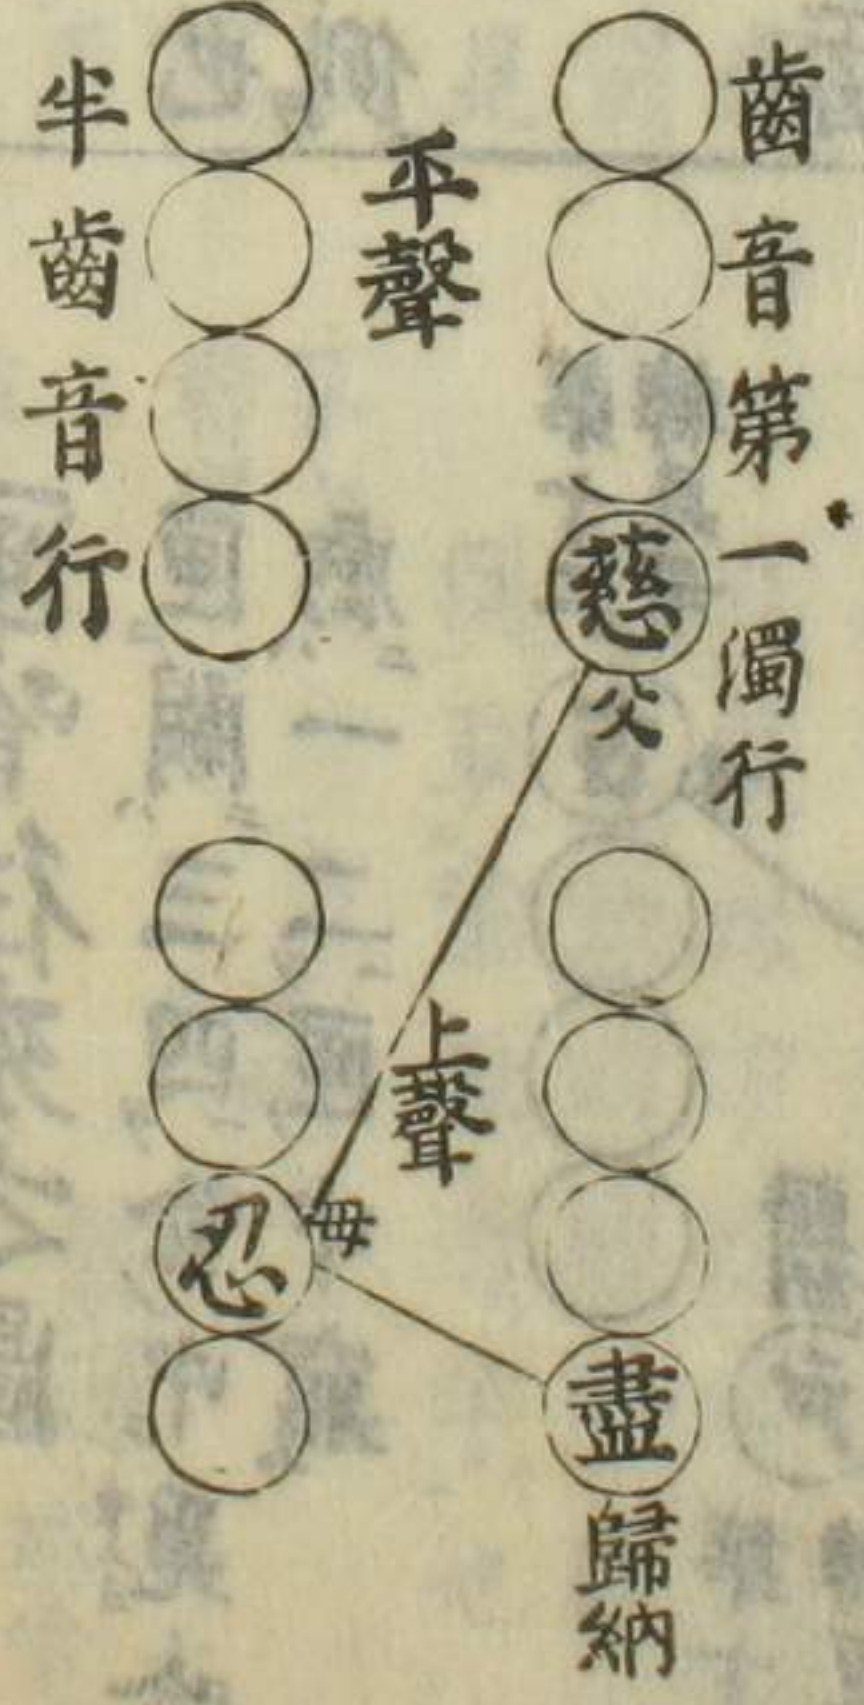 齒音第一濁行
慈
父
盡
歸納
平聲
上聲
母
忍
半齒音行